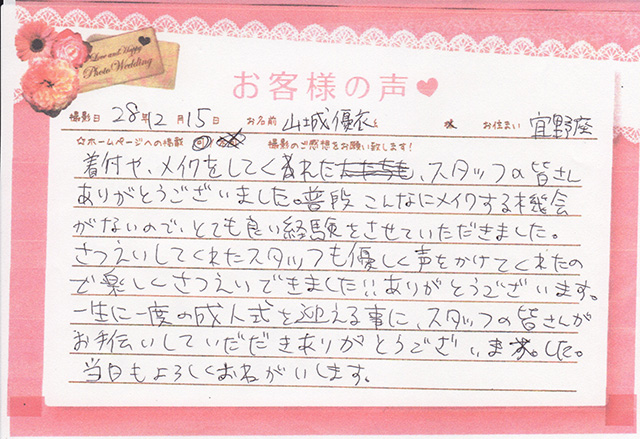 Love and Happy
Photo Wedding
お客様の声
撮影日 28年12月15日 お名前 山城優衣 様 お住まい 宜野座
☆ホームページへの掲載 可 撮影のご感想をお願い致します!
着付や、メイクをしてくれた、スタッフの皆さん
ありがとうございました。普段こんなにメイクする機会
がないので、とても良い経験をさせていただきました。
さつえいしてくれたスタッフも優しく声をかけてくれたの
で楽しくさつえいできました!!ありがとうございます。
一生に一度の成人式を迎える事に、スタッフの皆さんが
お手伝いしていだだきありがとうございました。
当日もよろしくおねがいします。